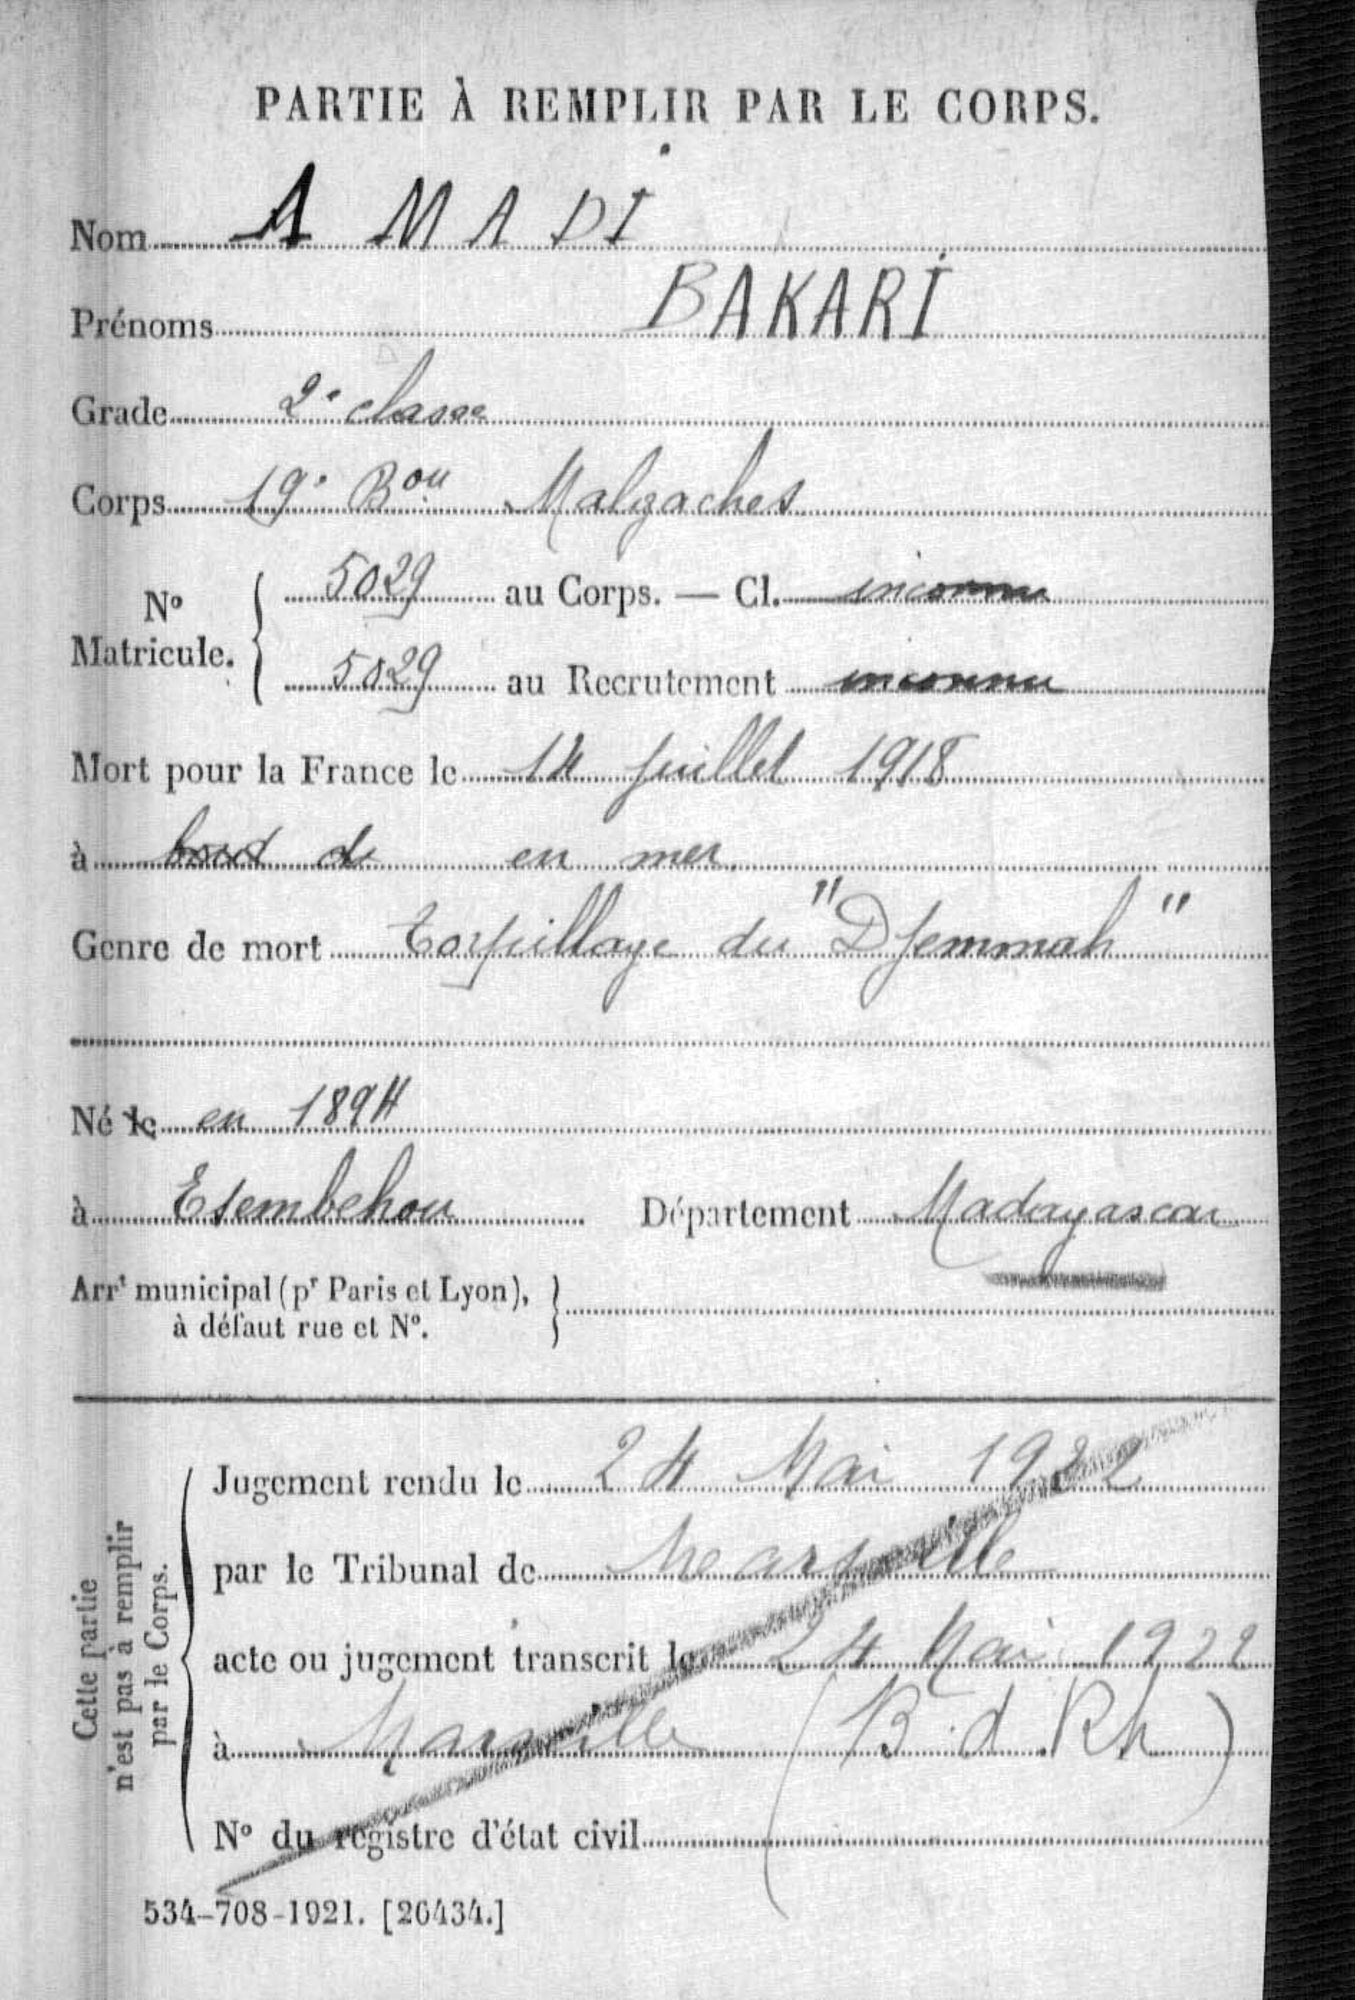 PARTIE À REMPLIR PAR LE CORPS.
Nom A MADI
Prénoms BAKARI
Grade 2e classe
Corps 19e Bon Malgaches
No Matricule. 5029 au Corps. — Cl. inconnu
5029 au Recrutement inconnu
Mort pour la France le 14 juillet 1918
à bord de en mer
Genre de mort Torpillage du "Djemmah"
Né le en 1894
à Esembehou Département Madagascar
Arrt municipal (pr Paris et Lyon),
à défaut rue et No.
Cette partie
n'est pas à remplir
par le Corps.
Jugement rendu le 24 Mai 1922
par le Tribunal de Marseille
acte ou jugement transcrit le 24 Mai 1922
à Marseille (B. d. Rh)
No du registre d'état civil
534-708-1921. [26434.]